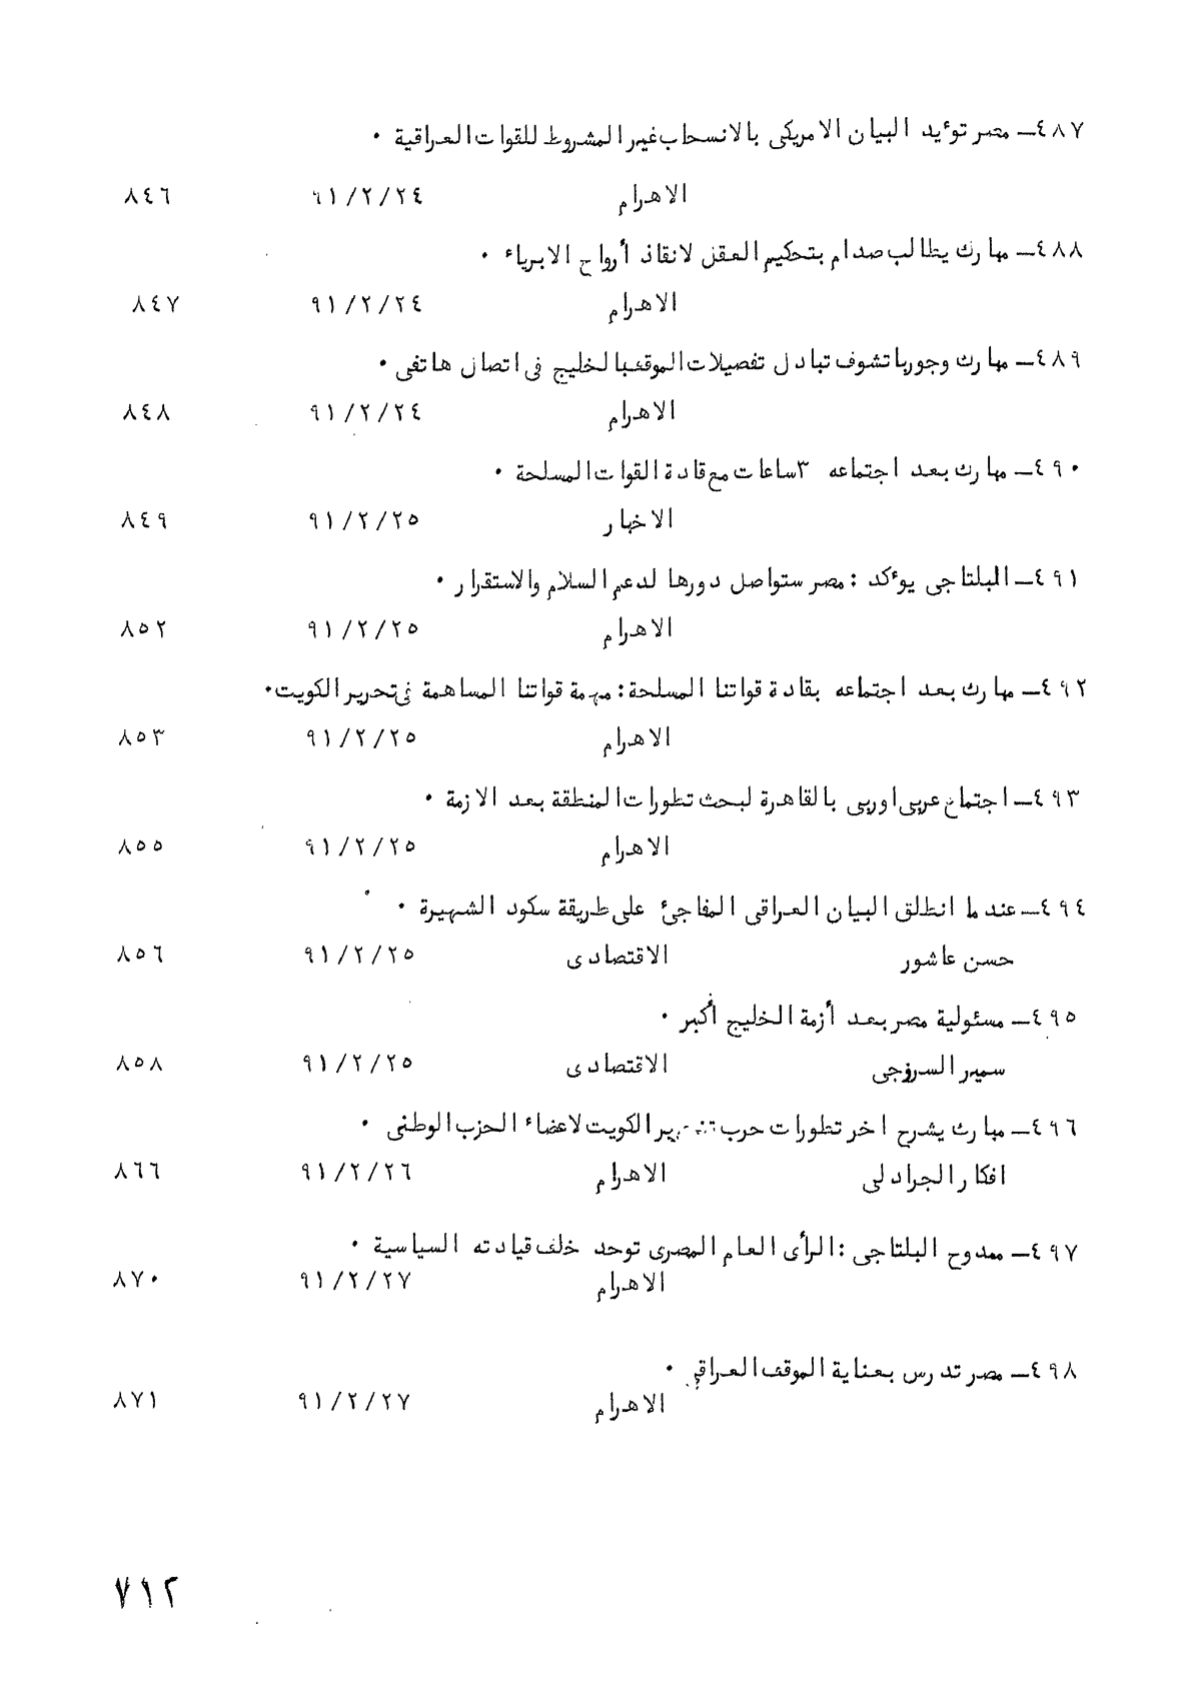 ٤٨٧ـ مصر توءيد البيان الامريكى بالانسحاب غير المشروط للقوات العراقية ٠
الاهرام ٩١/٢/٢٤ ٨٤٦
٤٨٨ـ مبارك يطالب صدام بتحكيم العقل لانقاذ أرواح الابرياء ٠
الاهرام ٩١/٢/٢٤ ٨٤٧
٤٨٩ـ مبارك وجورباتشوف تبادل تفصيلات الموقف بالخليج فى اتصال هاتفى ٠
الاهرام ٩١/٢/٢٤ ٨٤٨
٤٩٠ـ مبارك بعد اجتماعه ٣ساعات مع قادة القوات المسلحة ٠
الاخبار ٩١/٢/٢٥ ٨٤٩
٤٩١ـ البلتاجى يوءكد : مصر ستواصل دورها لدعم السلام والاستقرار ٠
الاهرام ٩١/٢/٢٥ ٨٥٢
٤٩٢ـ مبارك بعد اجتماعه بقادة قواتنا المسلحة: مهمة قواتنا المساهمة فى تحرير الكويت٠
الاهرام ٩١/٢/٢٥ ٨٥٣
٤٩٣ـ اجتماع عربى اوربى بالقاهرة لبحث تطورات المنطقة بعد الازمة ٠
الاهرام ٩١/٢/٢٥ ٨٥٥
٤٩٤ـ عندما انطلق البيان العراقى المفاجئ على طريقة سكود الشهيرة ٠
حسن عاشور الاقتصادى ٩١/٢/٢٥ ٨٥٦
٤٩٥ـ مسئولية مصر بعد أزمة الخليج أكبر ٠
سمير السروجى الاقتصادى ٩١/٢/٢٥ ٨٥٨
٤٩٦ـ مبارك يشرح اخر تطورات حرب تحرير الكويت لاعضاء الحزب الوطنى ٠
افكار الجرادلى الاهرام ٩١/٢/٢٦ ٨٦٦
٤٩٧ـ ممدوح البلتاجى :الرأى العام المصرى توحد خلف قيادته السياسية ٠
الاهرام ٩١/٢/٢٧ ٨٧٠
٤٩٨ـ مصر تدرس بعناية الموقف العراقى ٠
الاهرام ٩١/٢/٢٧ ٨٧١
٧١٢